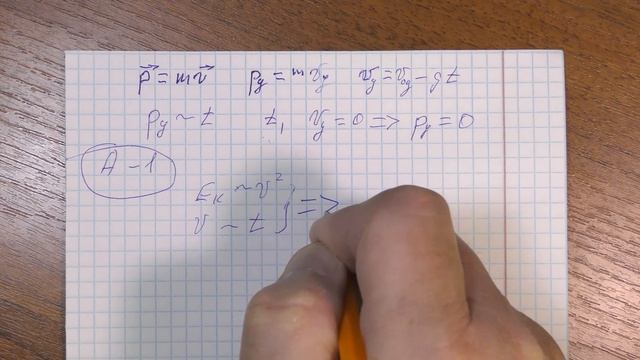 p⃗ = mv⃗ p_y = mv_y v_y = v_0y - gt
p_y ~ t t₁ v_y = 0 => p_y = 0
А - 1
E_к ~ v²
v ~ t } =>